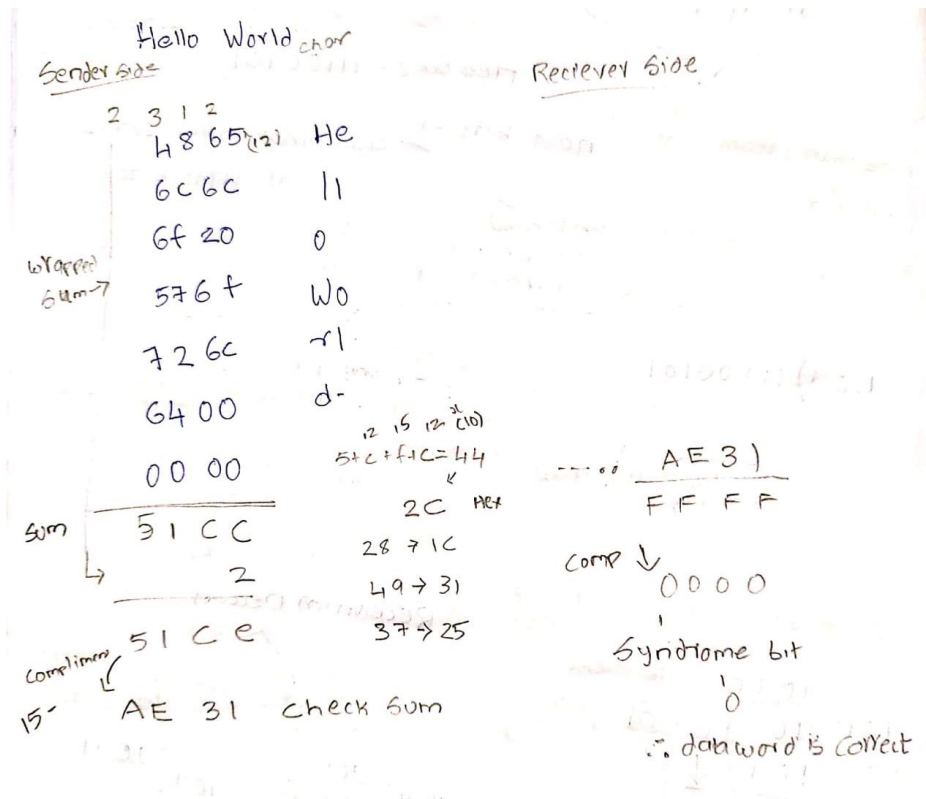 Hello World char
Sender side
Reciever Side
2 3 1 2
4865 (12) He
6C 6C ll
6f 20 o
wrapped sum→
576f Wo
726C rl
6400 d-
0000
12 15 12 (10)
5+C+f+C=44
2C Hex
28 → 1C
49 → 31
37 → 25
Sum 51CC
2
51Ce
Compliment
15-
AE 31 check sum
AE31
FFFF
comp ↓
0000
Syndrome bit
0
∴ dataword is correct